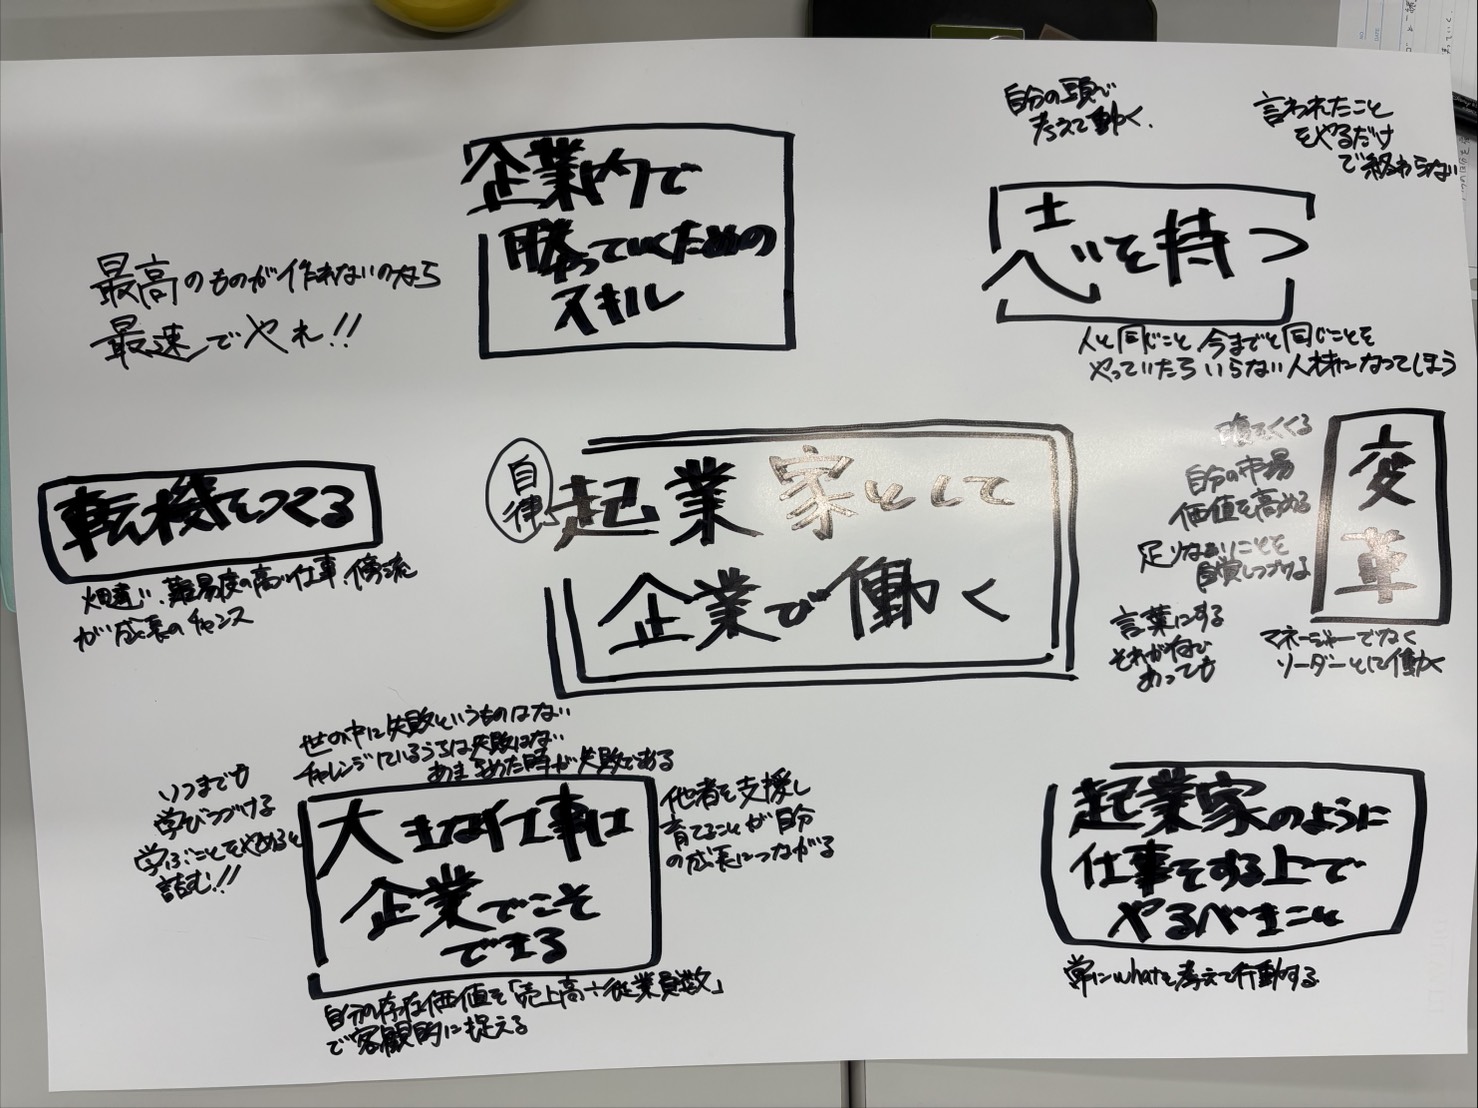 企業内で
勝っていくための
スキル
最高のものが作れないのなら
最速でやれ!!
自分の頭で
考えて動く.
言われたこと
をやるだけ
で終わらない
志を持つ
人と同じこと、今までと同じことを
やっていたらいらない人材になってしまう
自律
起業家として
企業で働く
転機をつくる
畑違い、難易度の高い仕事、傍流
が成長のチャンス
変革
自分の市場
価値を高める
足りないことを
自覚しつづける
言葉にする
それが
あっても
マネージャーでなく
リーダーとして働く
世の中に失敗というものはない
チャレンジしているうちは失敗はない
あきらめた時が失敗である
いつまでも
学びつづける
学ぶことをやめると
詰む!!
大きな仕事は
企業でこそ
できる
他者を支援し
育てることが自分
の成長につながる
自分の存在価値を「売上高÷従業員数」
で客観的に捉える
起業家のように
仕事をする上で
やるべきこと
常にwhatを考えて行動する